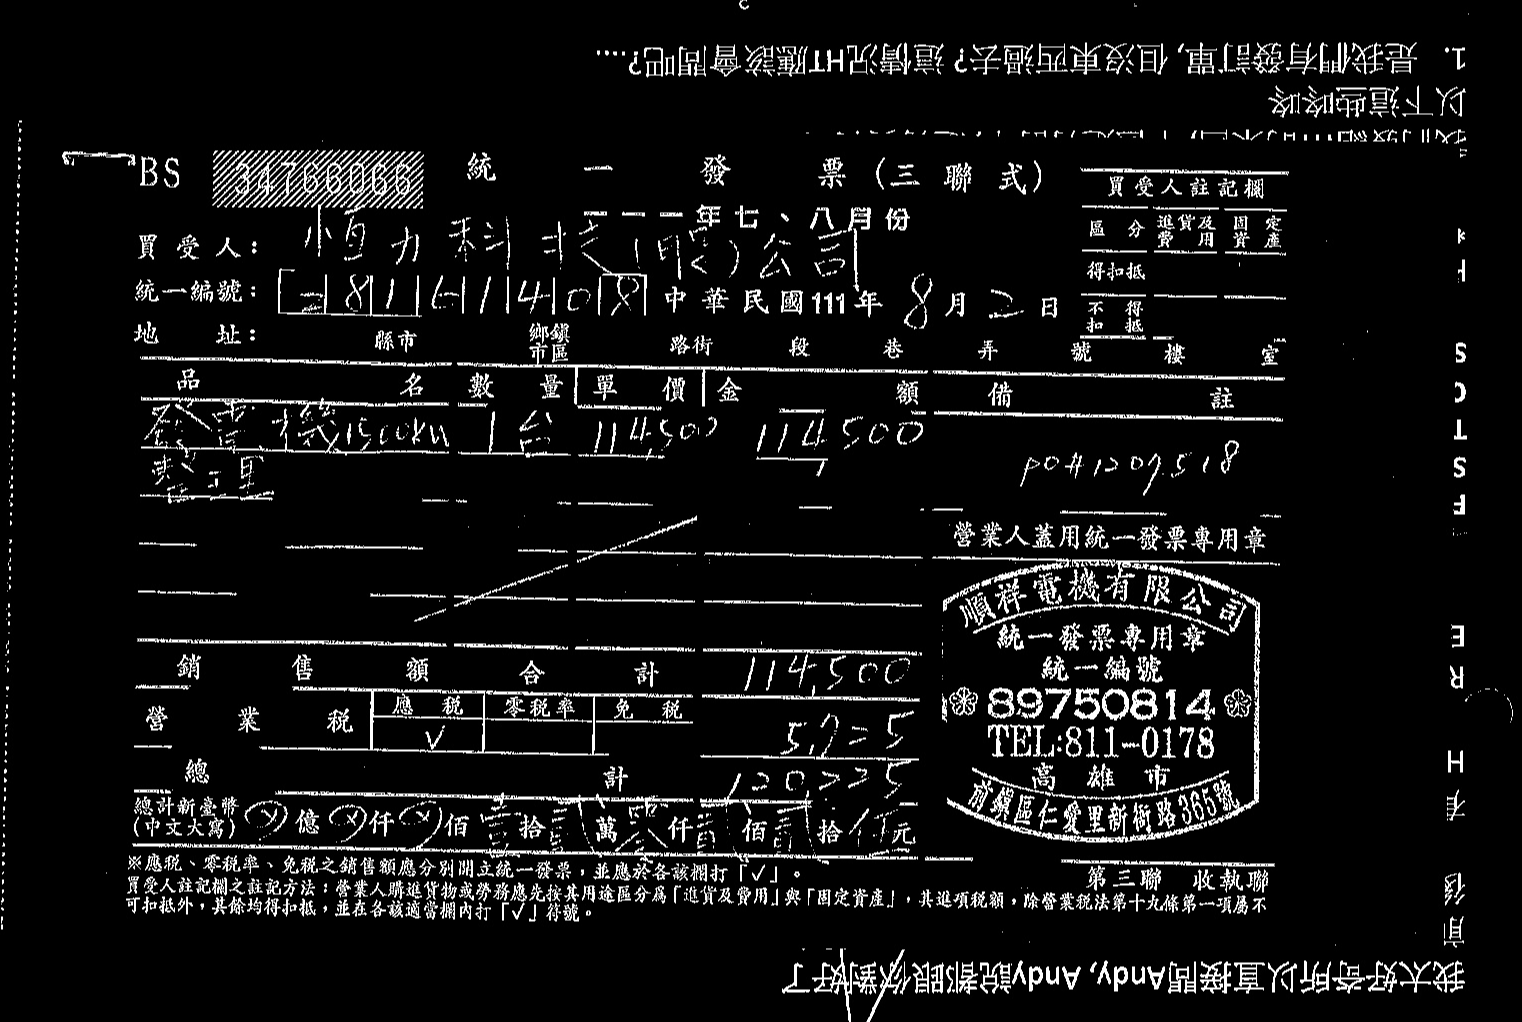 1. 是我們有發訂單, 但沒東西過去? 這情況HT應該會問吧?....
以下這些咚咚
BS 34766066 統一發票(三聯式)
一一一年七、八月份
買受人: 恒力科技(股)公司
統一編號: 28161408 中華民國111年8月2日
地址: 縣市 鄉鎮市區 路街 段 巷 弄 號 樓 室
買受人註記欄
區分 進貨及費用 固定資產
得扣抵
不得扣抵
品名 數量 單價 金額 備註
發電機1500KW 1台 114,500 114,500
整理
PO#1207518
營業人蓋用統一發票專用章
順祥電機有限公司
統一發票專用章
統一編號
89750814
TEL:811-0178
高雄市
前鎮區仁愛里新衙路365號
銷售額合計 114,500
營業稅 應稅 零稅率 免稅
✓ 5,725
總計 120,225
總計新臺幣
(中文大寫) ⊗億⊗仟⊗佰壹拾貳萬零仟貳佰貳拾伍元
※應稅、零稅率、免稅之銷售額應分別開立統一發票,並應於各該欄打「✓」。
買受人註記欄之註記方法:營業人購進貨物或勞務應先按其用途區分為「進貨及費用」與「固定資產」,其進項稅額,除營業稅法第十九條第一項屬不
可扣抵外,其餘均得扣抵,並在各該適當欄內打「✓」符號。
第三聯 收執聯
我太好奇所以直接問Andy, Andy說都跟你對好了